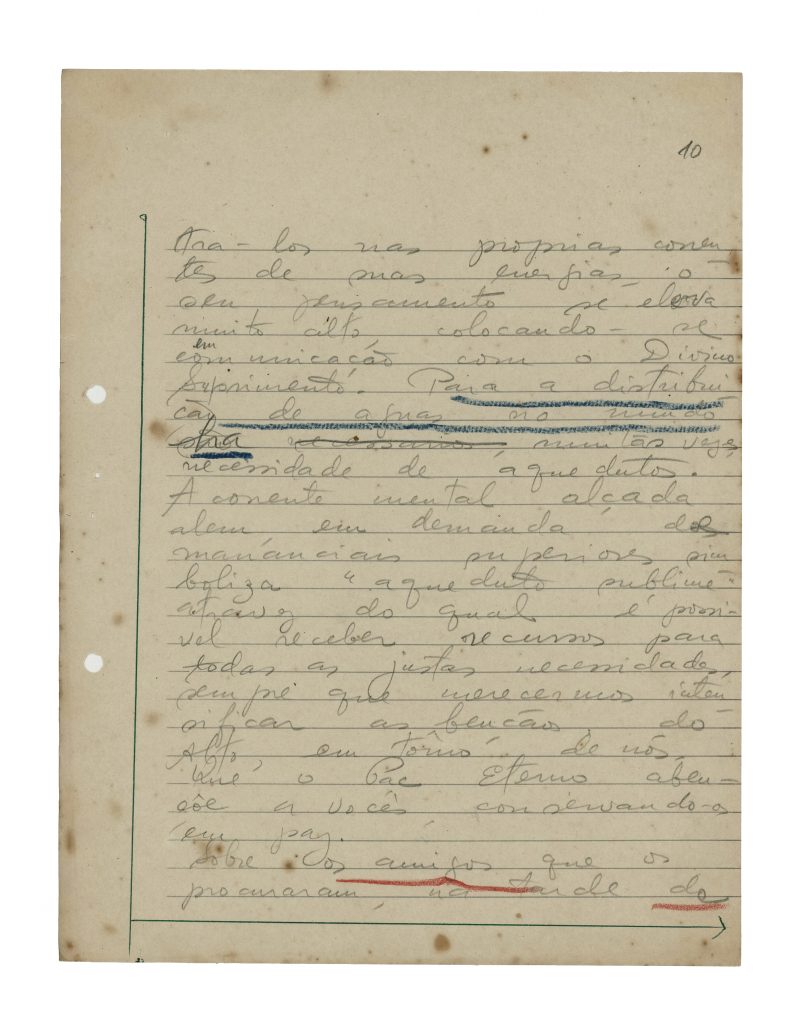 10
tra-los nas proprias corren
tes de suas energias, o
seu pensamento se eleva
muito alto, colocando-se
em
comunicação com o Divino
Suprimento. Para a distribui
ção de aguas no mundo
ha necessarios, muitas vezes,
necessidade de aquedutos.
A corrente mental alçada
alem em demanda dos
mananciais superiores sim
boliza "aqueduto sublime"
atravez do qual é possi-
vel receber recursos para
todas as justas necessidades,
sempre que merecermos inten
sificar as bençãos do
Alto, em tôrno de nós.
Que o Pae Eterno aben-
çôe a vocês conservando-os
em paz.
Sobre os amigos que os
procuraram, na tarde de